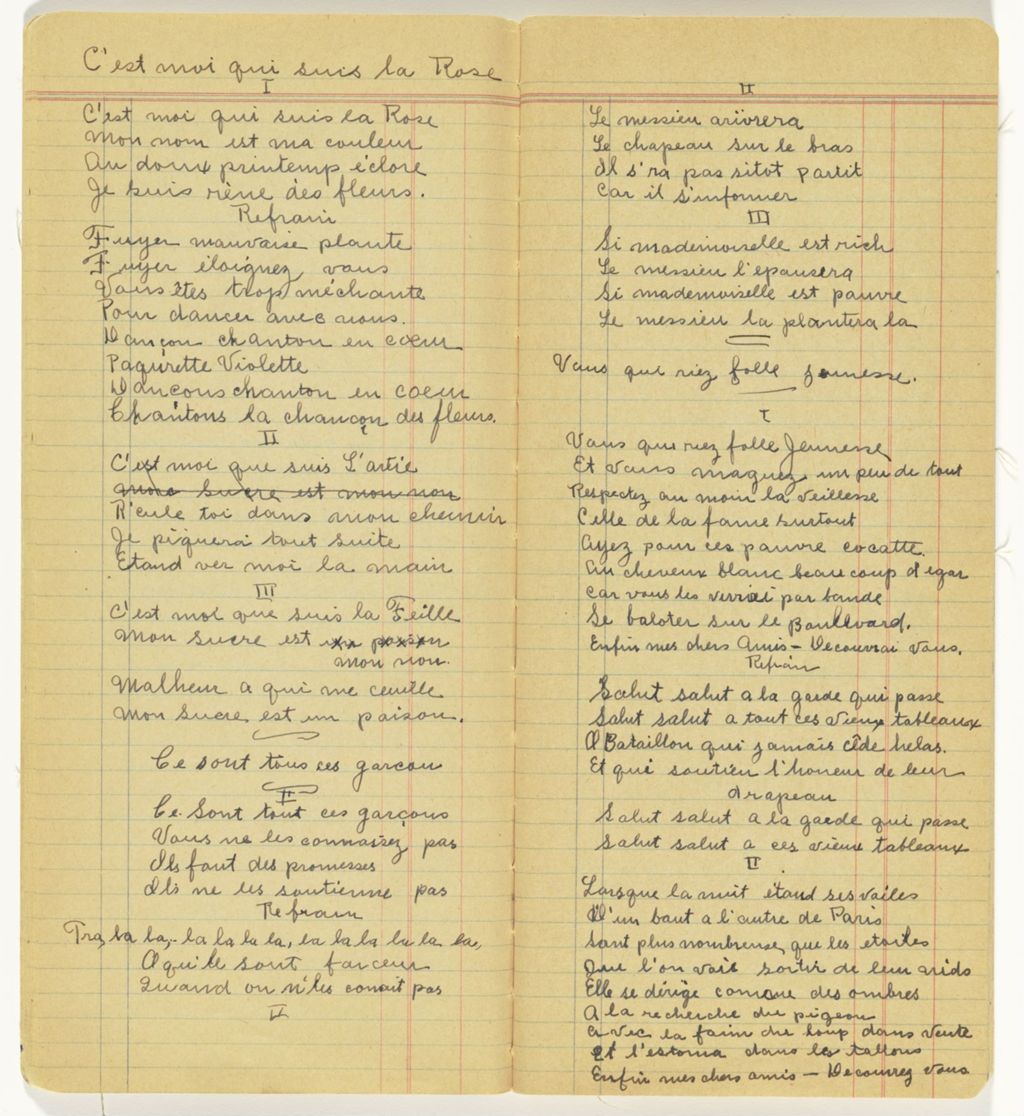 C'est moi qui suis la Rose
I
C'est moi qui suis la Rose
Mon nom est ma couleur
Au doux printemps éclore
Je suis rène des fleurs.
Refrain
Fuyer mauvaise plante
Fuyer éloignez vous
Vous êtes trop méchante
Pour dancer avec nous.
Dançon chanton en coeur
Paqurette Violette
Dancons chanton en coeur
Chantons la chançon des fleurs.
II
C'est moi que suis L'artie
sucre est mon non
R'cule toi dans mon chemin
Je piquerai tout suite
Etand ver moi la main
III
C'est moi que suis la Feille
Mon sucre est un poison
mon non.
Malheur a qui me ceuille
Mon sucre est un paison.
Ce sont tous ces garcon
I
Ce Sont tout ces garçons
Vous ne les connaisez pas
Ils font des promesses
Ils ne les soutienne pas
Refrain
Tra, la la, la la la la, la la la la la la,
A qu'ile sont farceur
Quand on n'les conait pas
II
Le messieu arivrera
Le chapeau sur le bras
Il s'ra pas sitot partit
Car il s'informer
III
Si mademoiselle est rich
Le messieu l'epausera
Si mademoiselle est pauvre
Le messieu la plantera la
Vous que riez folle jeunesse.
I
Vous que riez folle Jeunesse
Et vous maquez un peu de tout
Respectez au moin la veillesse
Celle de la fame surtout
Ayez pour ces pauvre cocatte.
Au cheveux blanc beaucoup d'egar
Car vous les verrai par bande
Se baloter sur le Boulevard.
Enfin mes chers Amis - Decouvrai vous.
Refrain
Salut salut a la garde qui passe
Salut salut a tout ces vieux tableaux
A Bataillon qui jamais cède helas.
Et qui soutien l'honeur de leur
drapeau
Salut salut a la garde qui passe
Salut salut a ces vieux tableaux
II
Lorsque la nuit étand ses vailes
D'un baut a l'autre de Paris
Sont plus nombreuse, que les etoiles
Que l'on vait sortir de leur nids
Elle se dérige comme des ombres
A la recherche du pigeon
avec la faim du loup dans vente
et l'estoma dans les tallons
Enfin mes chers amis - Decouvrez vous